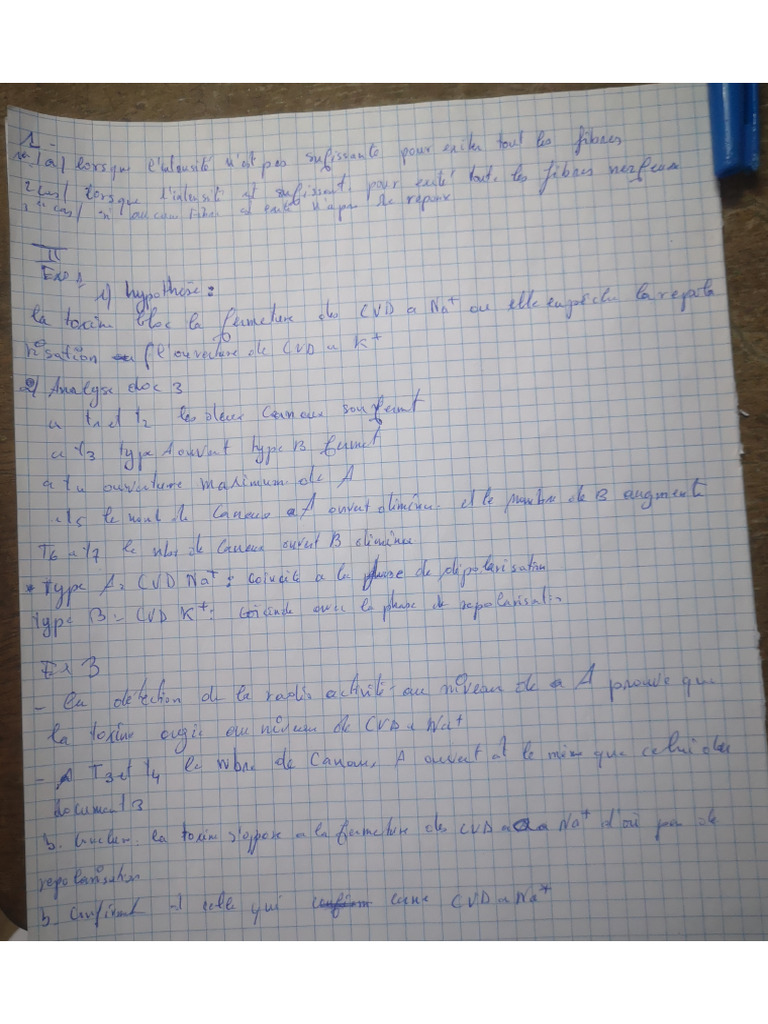 1 -
1er/a) lorsque l'intensité n'est pas sufissante pour exiter tout les fibres
2 cas/ lorsque l'intensité est sufissant pour exité toute les fibres nerfeux
si aucun fibre exité n'a pas de reponse
II
Exo 1
1) hypothèse :
la toxine bloc la fermeture des CVD a Na+ ou elle empèche la repola
risation l'ouverture de CVD a K+
2) Analyse doc 3
a t1 et t2 les deux Canaux son fermt
a t3 type A ouvert type B fermet
a t4 ouverture maximum de A
a t5 le nomb de Canaux a A ouvert diminue et le nombre de B augmente
T6 a t7 le nbr de Canaux ouvert B diminue
* Type A = CVD Na+ : coincite a la phase de dipolarisation
type B = CVD K+ : coicinde avec la phase de repolarisation
Ex 3
- la détection de la radio activité au niveau de a A prouve que
la toxine augie au niveau de CVD a Na+
- A T3 et t4 le nbre de Canaux A ouvert et le mem que celui du
document 3
b. la toxine s'oppose a la fermeture des CVD a Na+ d'où pas de
repolarisation
b. et celle qui cane CVD a Na+